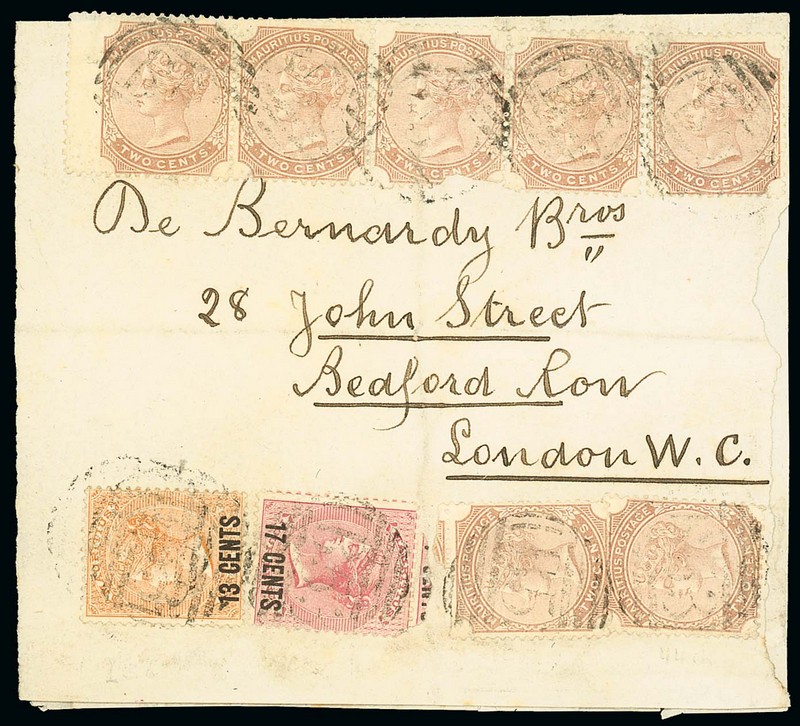 MAURITIUS POSTAGE MAURITIUS POSTAGE MAURITIUS POSTAGE MAURITIUS POSTAGE
TWO CENTS. TWO CENTS. TWO CENTS. TWO CENTS. TWO CENTS.
De Bernardy Bros
28 John Street
Bedford Row
London W. C.
13 CENTS
17 CENTS
MAURITIUS POSTAGE
TWO CENTS
MAURITIUS POSTAGE
TWO CENTS